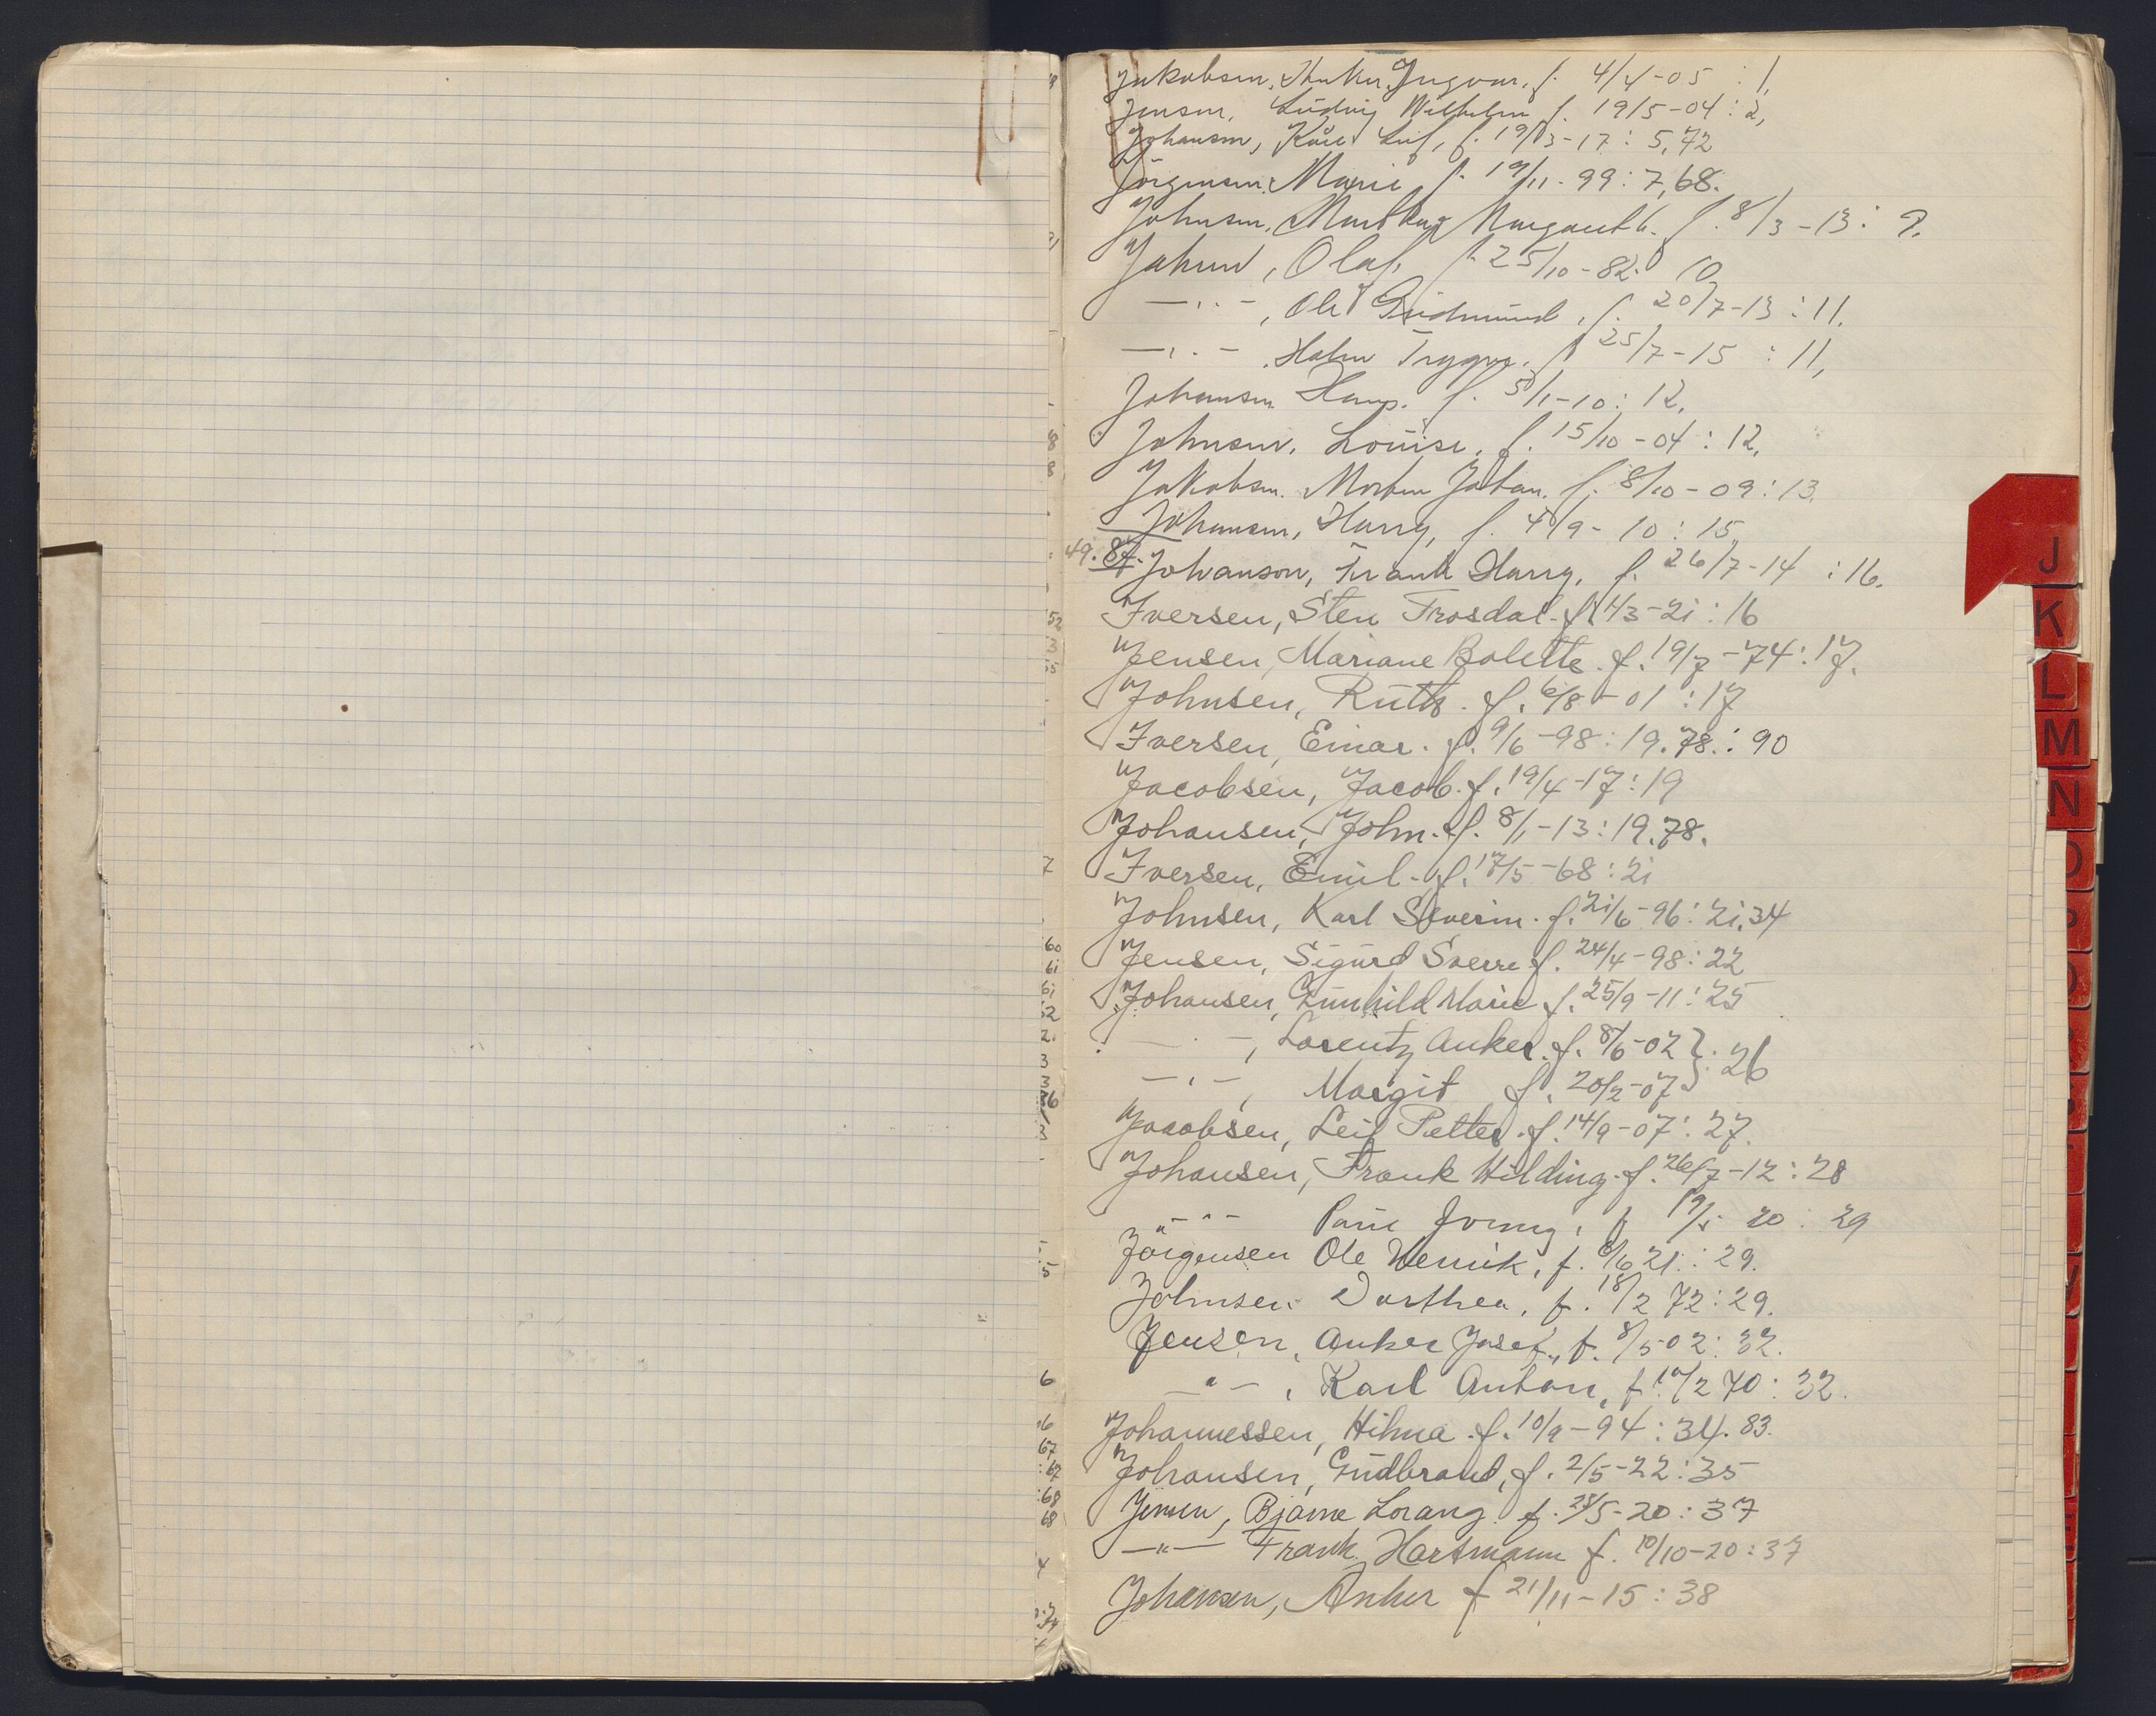 Jakobsen, Anker Ingvar, f. 4/4-05 : 1,
Jensen, Ludvig Wilhelm f. 19/5-04 : 2,
Johansen, Kåre Leif, f. 19/3-17 : 5,72
Jörgensen, Marie f. 19/11-99 : 7,68.
Johnsen, Margareth f. 8/3-13 : 9.
Olaf, f. 25/10-82 10
—„—, Ole Gudmund, f. 20/7-13 : 11.
—„— Trygve. f. 25/7-15 : 11,
Johansen Hans. f. 5/1-10 : 12.
Johnsen, Louise, f. 15/10-04 : 12,
Jakobsen. Morten Johan. f. 8/10-09 : 13.
Johansen, Harry, f. 4/9-10 : 15,
49. 87. Johanson, Frank Harry, f. 26/7-14 : 16.
Iversen, Sten Trosdal. f. 4/3-21 : 16
Jensen, Mariane Bolette. f. 19/7-74 : 17.
Johnsen, Ruth. f. 6/8-01 : 17
Iversen, Einar. f. 9/6-98 : 19.78. : 90
Jacobsen, Jacob. f. 19/4-17 : 19
Johansen, John. f. 8/1-13 : 19.78.
Iversen, Emil. f. 17/5-68 : 21
Johnsen, Karl Severin. f. 21/6-96 : 21.34
Jensen, Sigurd Sverre f. 24/4-98 : 22
Johansen, Gunhild Marie f. 25/9-11 : 25
— . —, Lorentz Anker. f. 8/6-02 } : 26
— „ —, Margit f. 20/2-07
Jacobsen, Leif Petter. f. 14/9-07 : 27.
Johansen, Frank Hilding. f. 26/7-12 : 28
— „ — f 19/5 20 : 29
Jörgensen Ole Henrik, f. 8/6 21. : 29.
Johnsen Dorthea, f. 18/2 72 : 29.
Jensen, Anker Josef, f. 8/5-02 : 32.
— „ —, Karl Anton, f. 10/2 70 : 32.
Johannessen, Hilma. f. 10/9-94 : 34. 83.
Johansen, Gudbrand, f. 2/5-22 : 35
Jensen, Bjarne Lorang f. 28/5-20 : 37
—„— Frank Hartmann f. 10/10-20 : 37
Johansen, Anker f 21/11-15 : 38
J
K
L
M
N